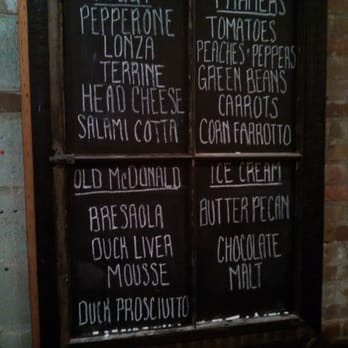 PEPPERONE
LONZA
TERRINE
HEAD CHEESE
SALAMI COTTA
FARMERS
TOMATOES
PEACHES + PEPPERS
GREEN BEANS
CARROTS
CORN FARROTTO
OLD McDONALD
BRESAOLA
DUCK LIVER
MOUSSE
DUCK PROSCIUTTO
ICE CREAM
BUTTER PECAN
CHOCOLATE
MALT